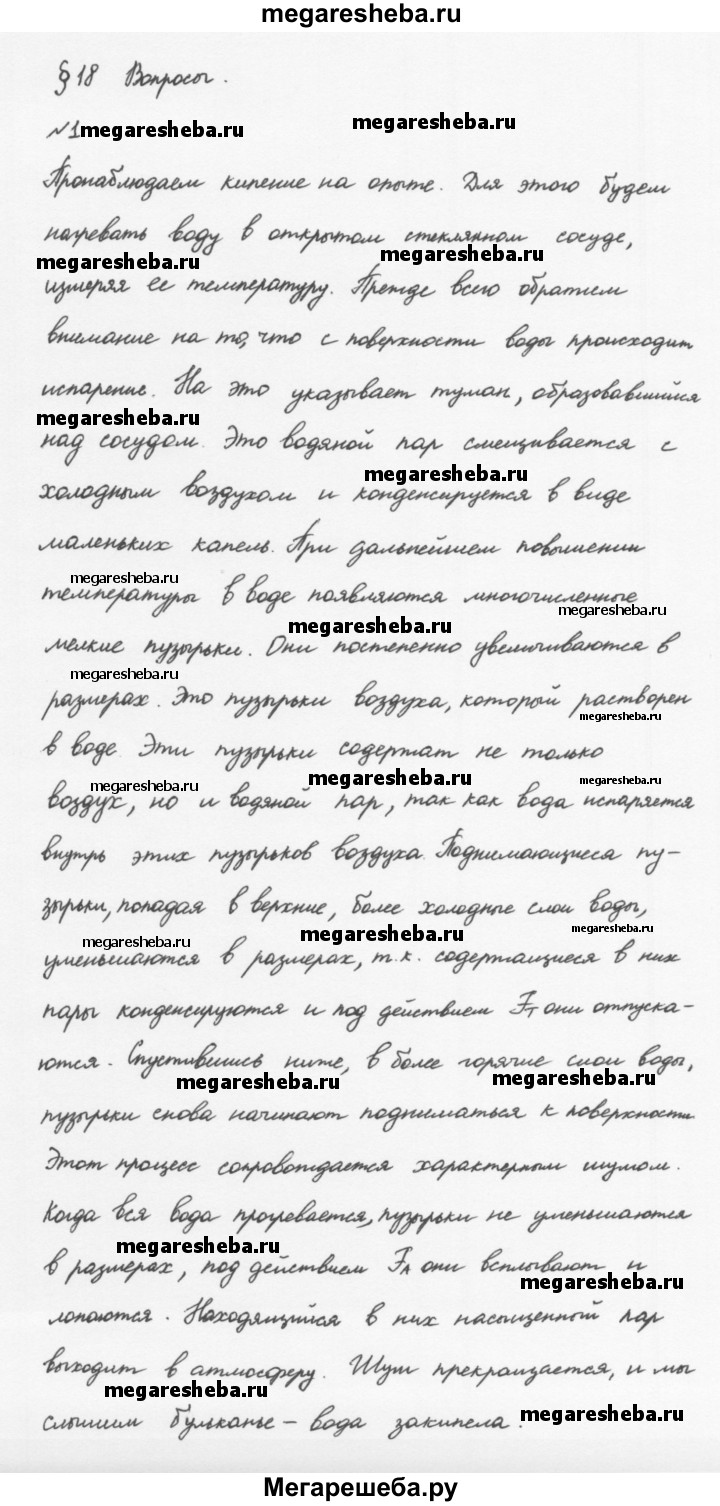 megaresheba.ru
§18 Вопросы.
№1 megaresheba.ru megaresheba.ru
Пронаблюдаем кипение на опыте. Для этого будем
нагревать воду в открытом стеклянном сосуде,
megaresheba.ru megaresheba.ru
измеряя ее температуру. Прежде всего обратим
внимание на то, что с поверхности воды происходит
испарение. На это указывает туман, образовавшийся
megaresheba.ru
над сосудом. Это водяной пар смешивается с
megaresheba.ru
холодным воздухом и конденсируется в виде
маленьких капель. При дальнейшем повышении
megaresheba.ru
температуры в воде появляются многочисленные
megaresheba.ru megaresheba.ru
мелкие пузырьки. Они постепенно увеличиваются в
megaresheba.ru
размерах. Это пузырьки воздуха, который растворен
megaresheba.ru
в воде. Эти пузырьки содержат не только
megaresheba.ru megaresheba.ru megaresheba.ru
воздух, но и водяной пар, так как вода испаряется
внутрь этих пузырьков воздуха. Поднимающиеся пу-
зырьки, попадая в верхние, более холодные слои воды,
megaresheba.ru megaresheba.ru megaresheba.ru
уменьшаются в размерах, т.к. содержащиеся в них
пары конденсируются и под действием Fт они отпуска-
ются. Спустившись ниже, в более горячие слои воды,
megaresheba.ru megaresheba.ru
пузырьки снова начинают подниматься к поверхности.
Этот процесс сопровождается характерным шумом.
Когда вся вода прогревается, пузырьки не уменьшаются
megaresheba.ru
в размерах, под действием FА они всплывают и
megaresheba.ru
лопаются. Находящийся в них насыщенный пар
выходит в атмосферу. Шум прекращается, и мы
megaresheba.ru megaresheba.ru
слышим бульканье – вода закипела.
Мегарешеба.ру